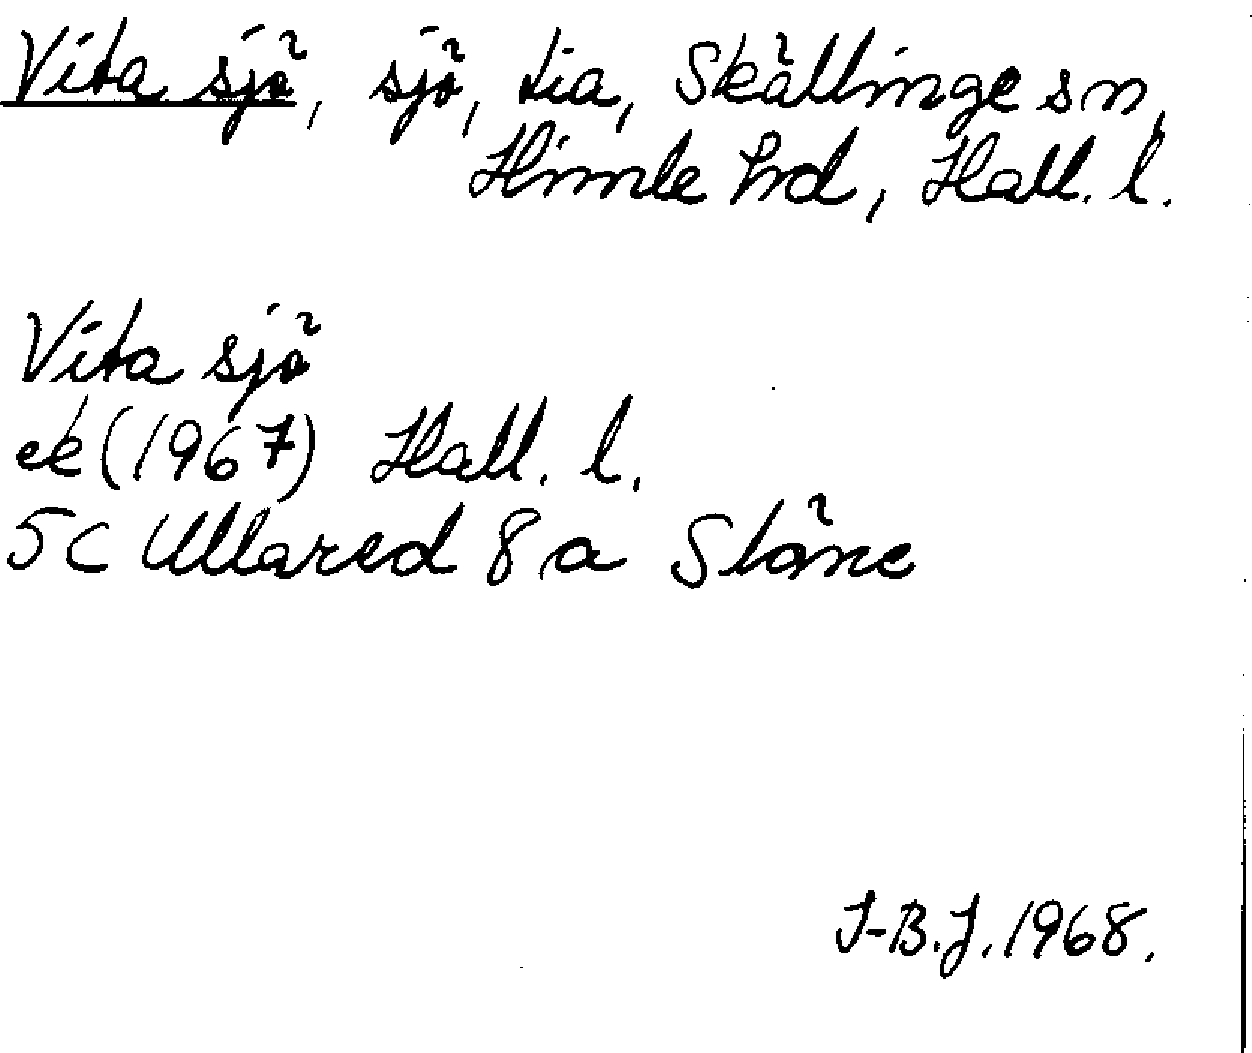 Vita sjö, sjö, tia, Skällinge sn,
Himle hd, Hall. l.
Vita sjö
ek (1967) Hall. l.
5C Ullared 8 a Stöne
I-B.J. 1968.